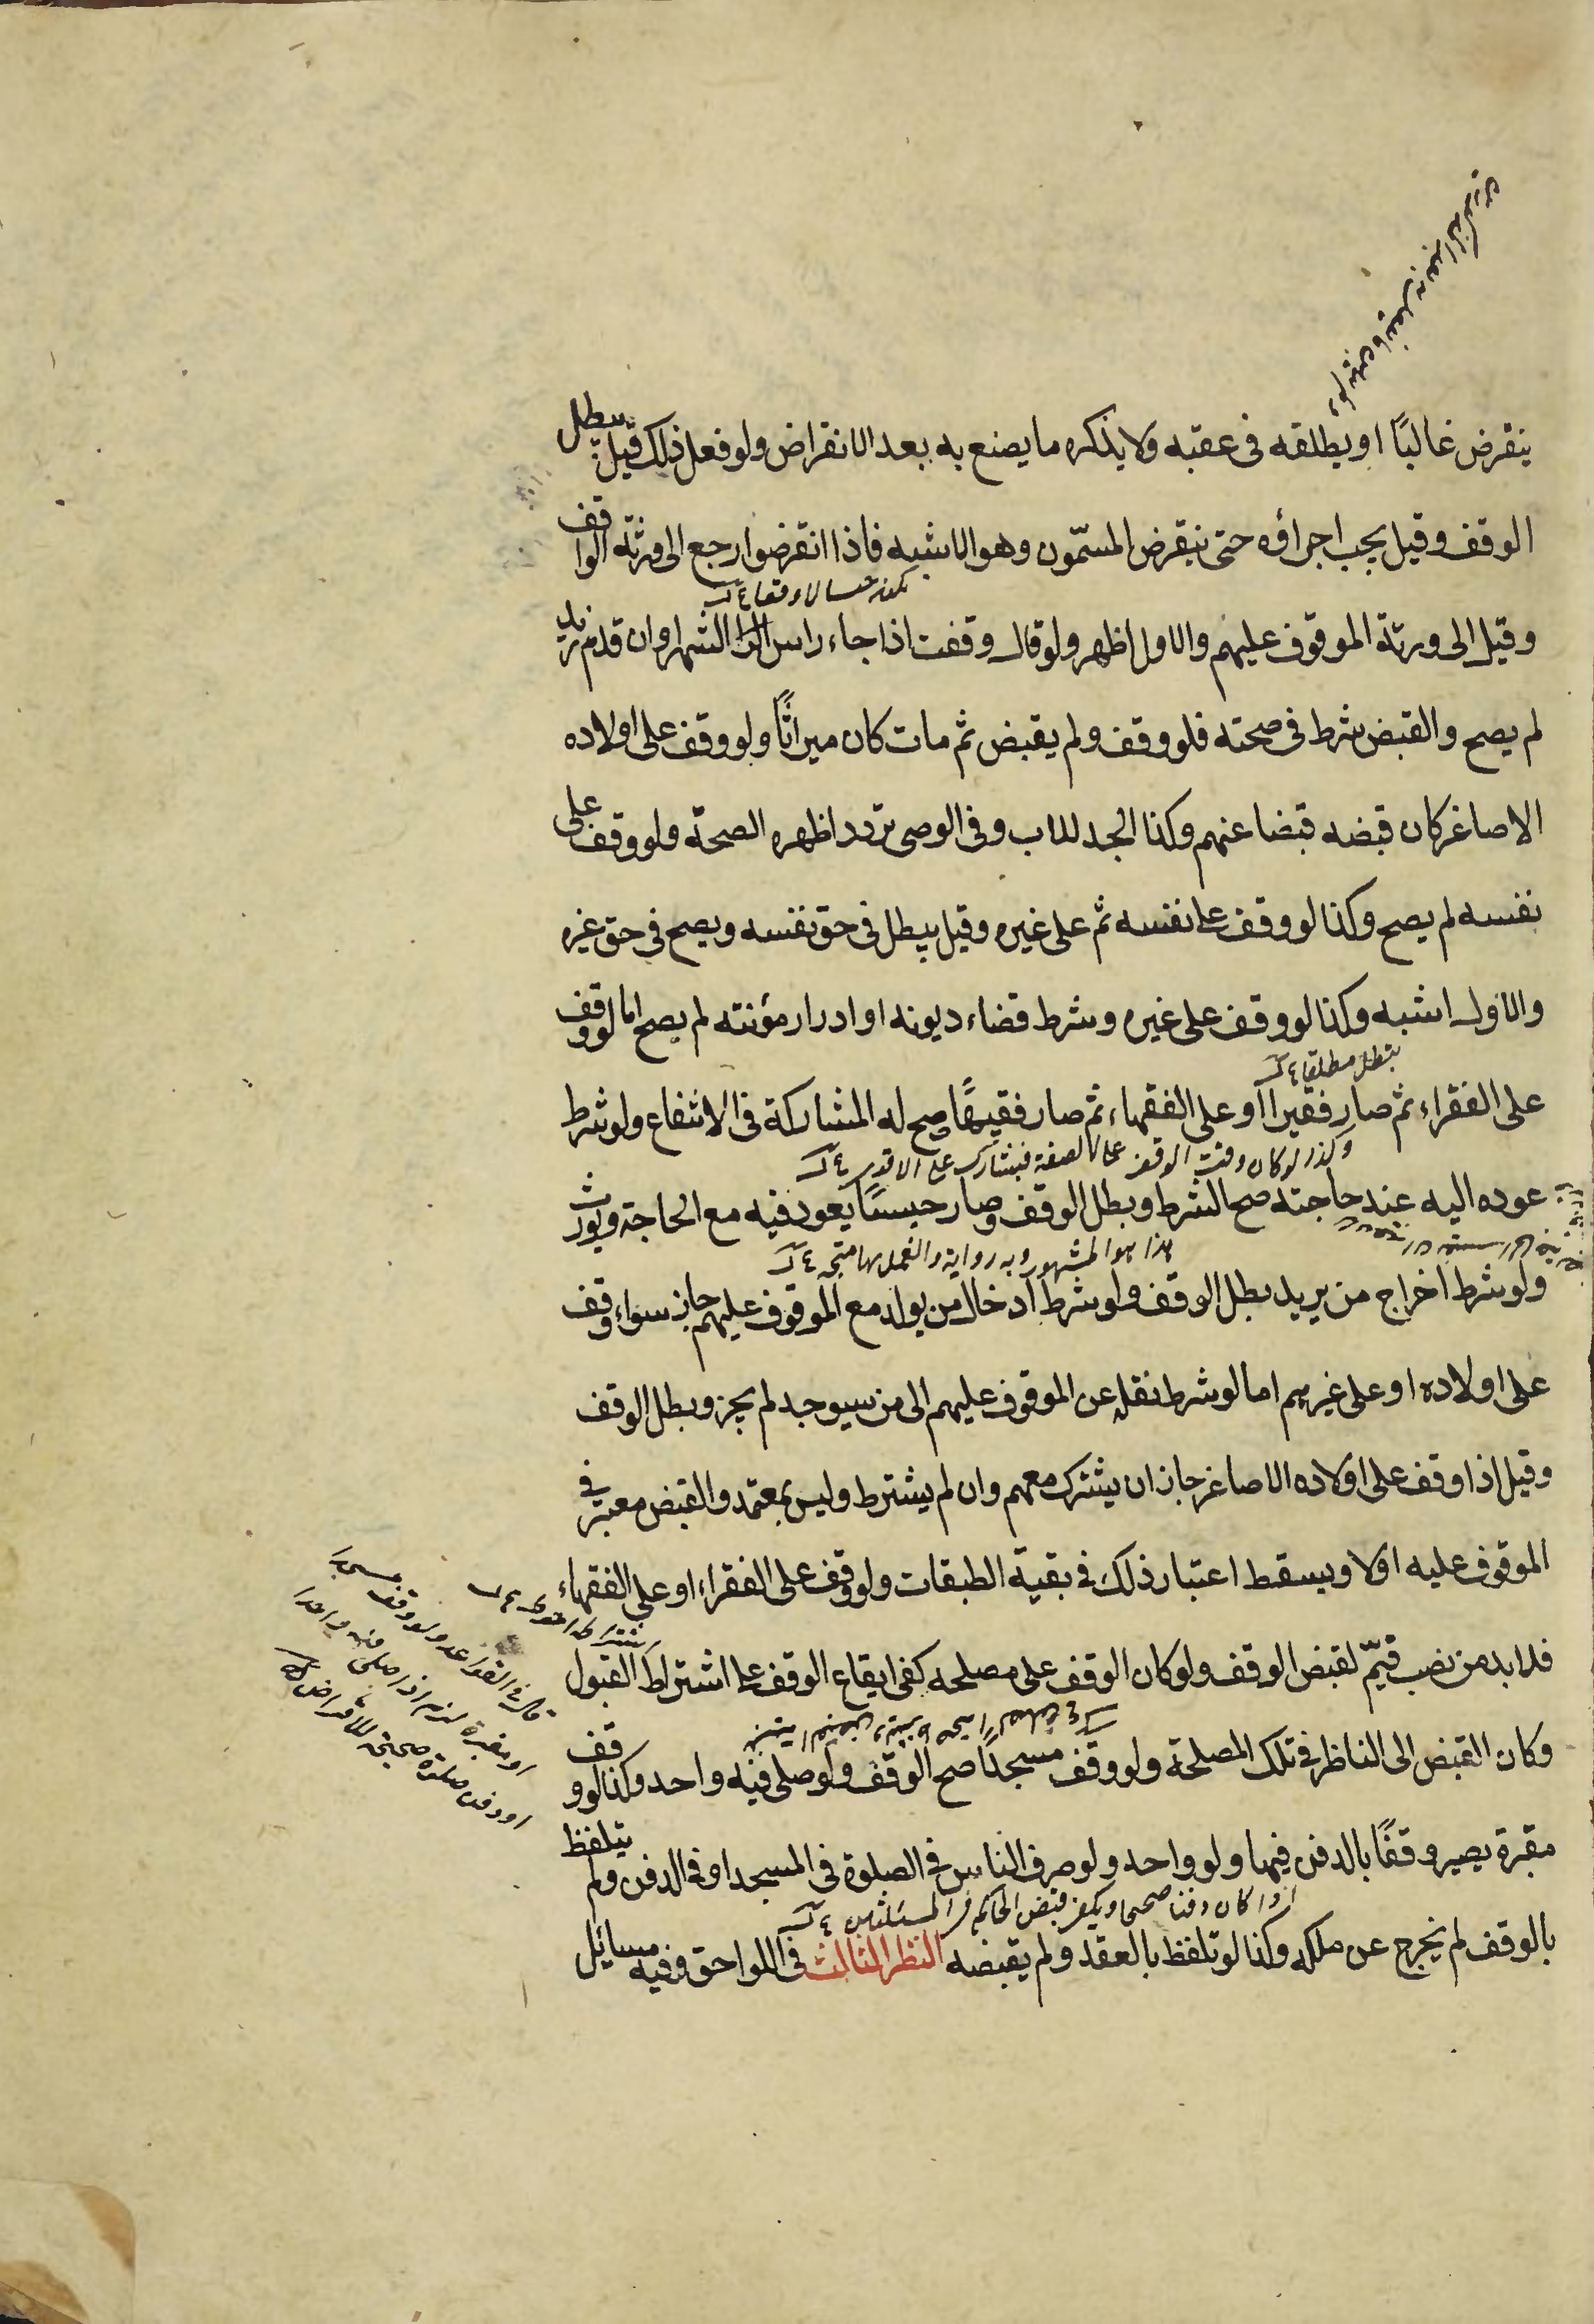 ينقرض غالبًا او يطلقه فى عقبه ولا يذكره ما يصنع به بعد الانقراض ولو فعل ذلك قيل يبطل
الوقف وقيل يجب اجراؤه حتى ينقرض المسمّون وهو الاشبه فاذا انقرضوا رجع الى ورثة الواقف
وقيل الى ورثة الموقوف عليهم والاول اظهر ولو قال وقفت اذا جاء راس الشهر او ان قدم زيد
لم يصح والقبض شرط فى صحته فلو وقف ولم يقبض ثم مات كان ميراثًا ولو وقف على اولاده
الاصاغر كان قبضه قبضا عنهم وكذا الجد للاب وفى الوصى تردد اظهره الصحة ولو وقف على
نفسه لم يصح وكذا لو وقف على نفسه ثم على غيره وقيل يبطل فى حق نفسه ويصح فى حق غيره
والاول اشبه وكذا لو وقف على غيره وشرط قضاء ديونه او ادرار مؤنته لم يصح اما لو وقف
يبطل مطلقا
على الفقراء ثم صار فقيرا او على الفقهاء ثم صار فقيهًا صح له المشاركة فى الانتفاع ولو شرط
وكذا لو كان وقت الوقف الصفة فيشارك على الاقوى
عوده اليه عند حاجته صح الشرط وبطل الوقف وصار حبسًا يعود فيه مع الحاجة ويورث
هذا هو المشهور وبه رواية والعمل بها متجه
ولو شرط اخراج من يريد بطل الوقف ولو شرط ادخال من يولد مع الموقوف عليهم جاز سواء وقف
على اولاده او على غيرهم اما لو شرط نقله عن الموقوف عليهم الى من سيوجد لم يجز وبطل الوقف
وقيل اذا وقف على اولاده الاصاغر جاز ان يشترك معهم وان لم يشترط وليس بمعتمد والقبض معتبر فى
الموقوف عليه اولا ويسقط اعتبار ذلك فى بقية الطبقات ولو وقف على الفقراء او على الفقهاء
فلا بد من نصب قيّم لقبض الوقف ولو كان الوقف على مصلحه كفى ايقاع الوقف على اشتراط القبول
وكان القبض الى الناظر فى تلك المصلحة ولو وقف مسجدًا صح الوقف ولو صلى فيه واحد وكذا لو وقف
مقبرة يصير وقفًا بالدفن فيها ولو واحد ولو صرف الناس فى الصلوة فى المسجد او فى الدفن ولم يتلفظ
اذا كان دفنا صحيحا ويكفى قبض الحاكم فى المسئلتين
بالوقف لم يخرج عن ملكه وكذا لو تلفظ بالعقد ولم يقبضه النظر الثالث فى اللواحق وفيه مسائل
اشتراطه احوط
قال فى القواعد ولو وقف مسجدا
او مقبرة لزم اذا صلى فيه واحدا
او دفن صلوة صحيحة